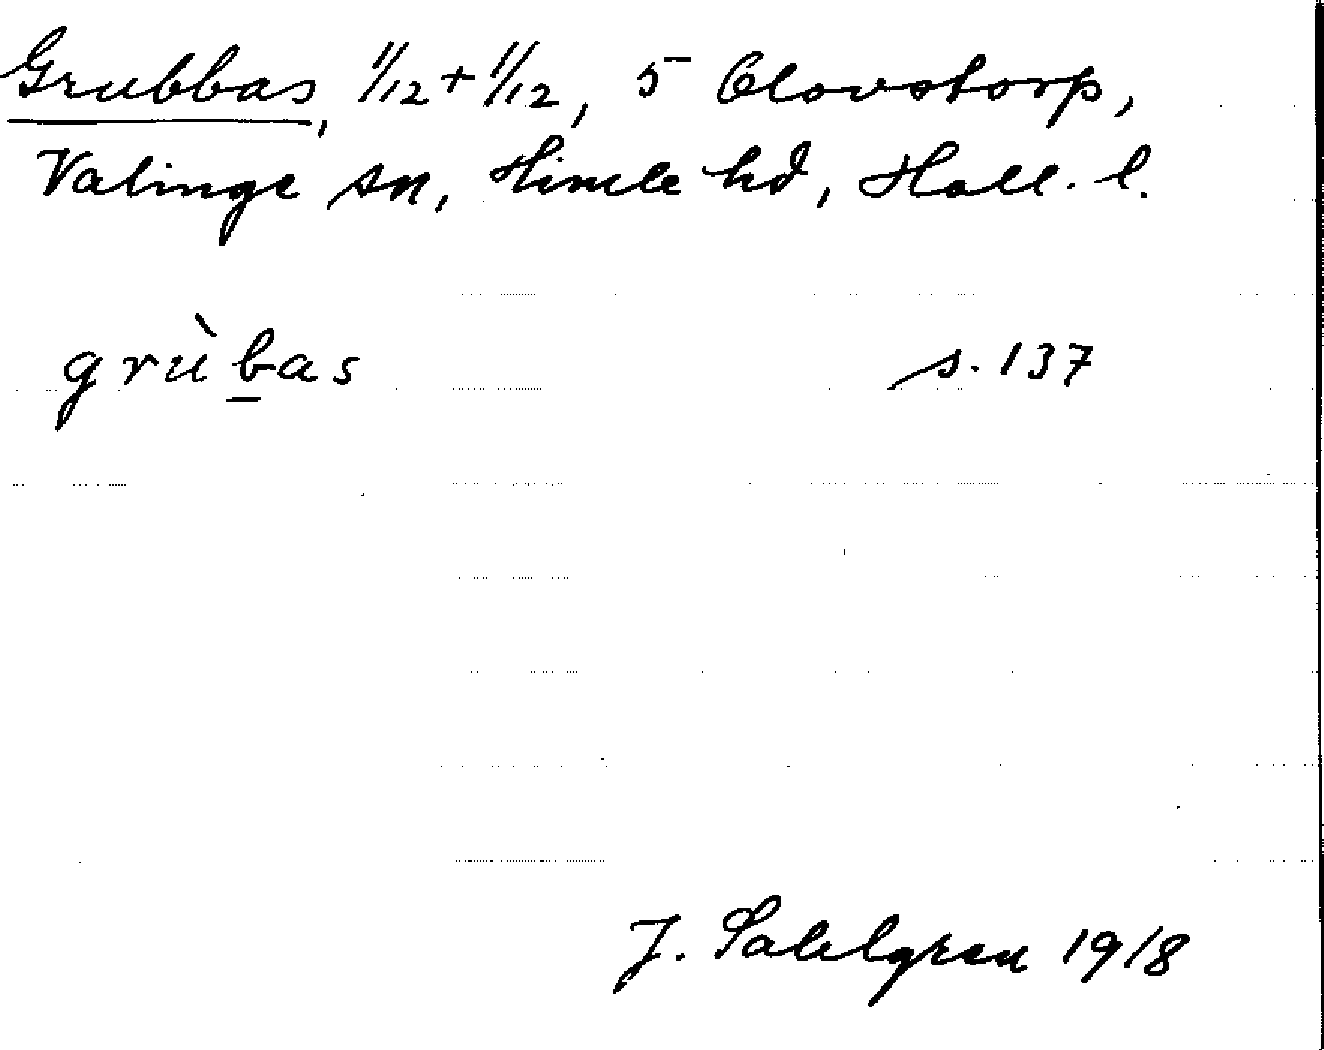 Grubbas, 1/12 + 1/12, 5 Clovstorp,
Valinge sn, Himle hd, Hall. l.
grùb̲as s. 137
J. Sahlgren 1918